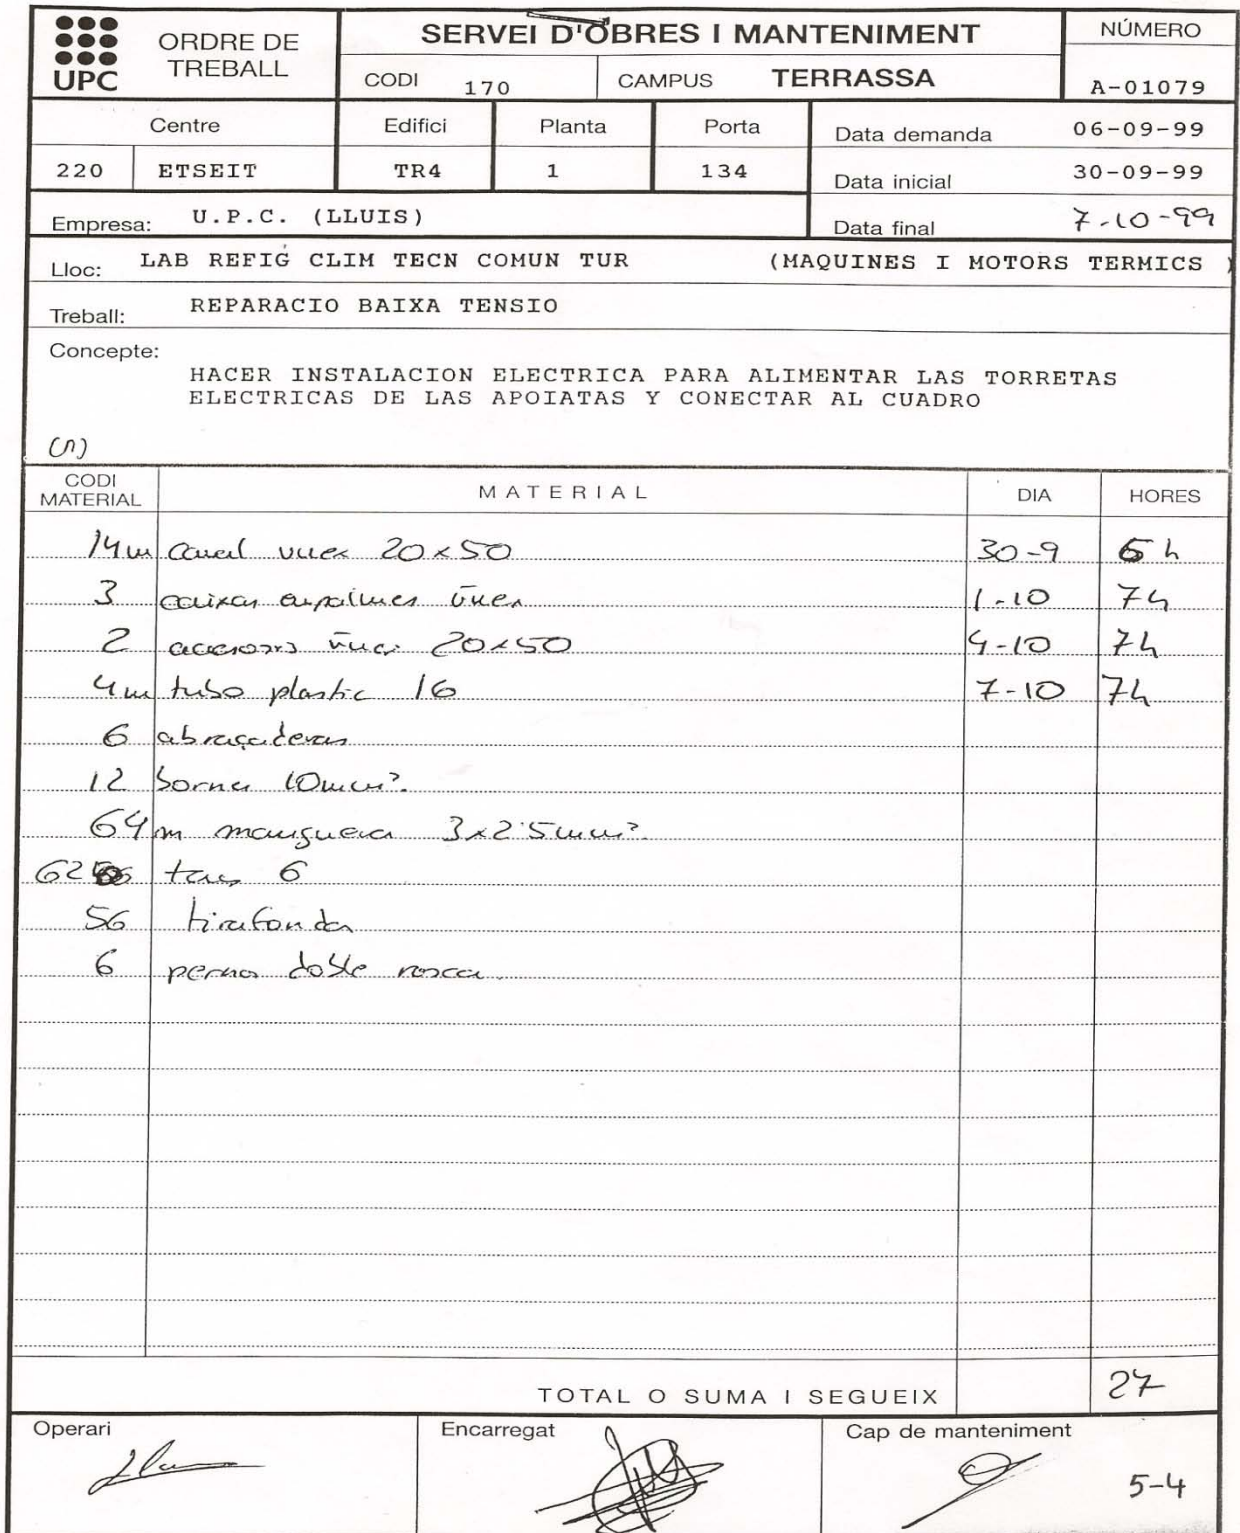 UPC
ORDRE DE TREBALL
SERVEI D'OBRES I MANTENIMENT
NÚMERO
CODI 170 CAMPUS TERRASSA
A-01079
Centre Edifici Planta Porta
Data demanda 06-09-99
220 ETSEIT TR4 1 134
Data inicial 30-09-99
Empresa: U.P.C. (LLUIS)
Data final 7-10-99
Lloc: LAB REFIG CLIM TECN COMUN TUR (MAQUINES I MOTORS TERMICS )
Treball: REPARACIO BAIXA TENSIO
Concepte:
HACER INSTALACION ELECTRICA PARA ALIMENTAR LAS TORRETAS
ELECTRICAS DE LAS APOIATAS Y CONECTAR AL CUADRO
CODI MATERIAL MATERIAL DIA HORES
14m canal 20x50 30-9 6 h
3 caixas 1-10 7h
2 20x50 4-10 7h
4m tubo plastic 16 7-10 7h
6 abraçaderas
12 borna 10mm².
64 m manguera 3x2'5mm².
62 6
56 tirafondos
6 pernos doble rosca.
TOTAL O SUMA I SEGUEIX 27
Operari Encarregat Cap de manteniment
5-4